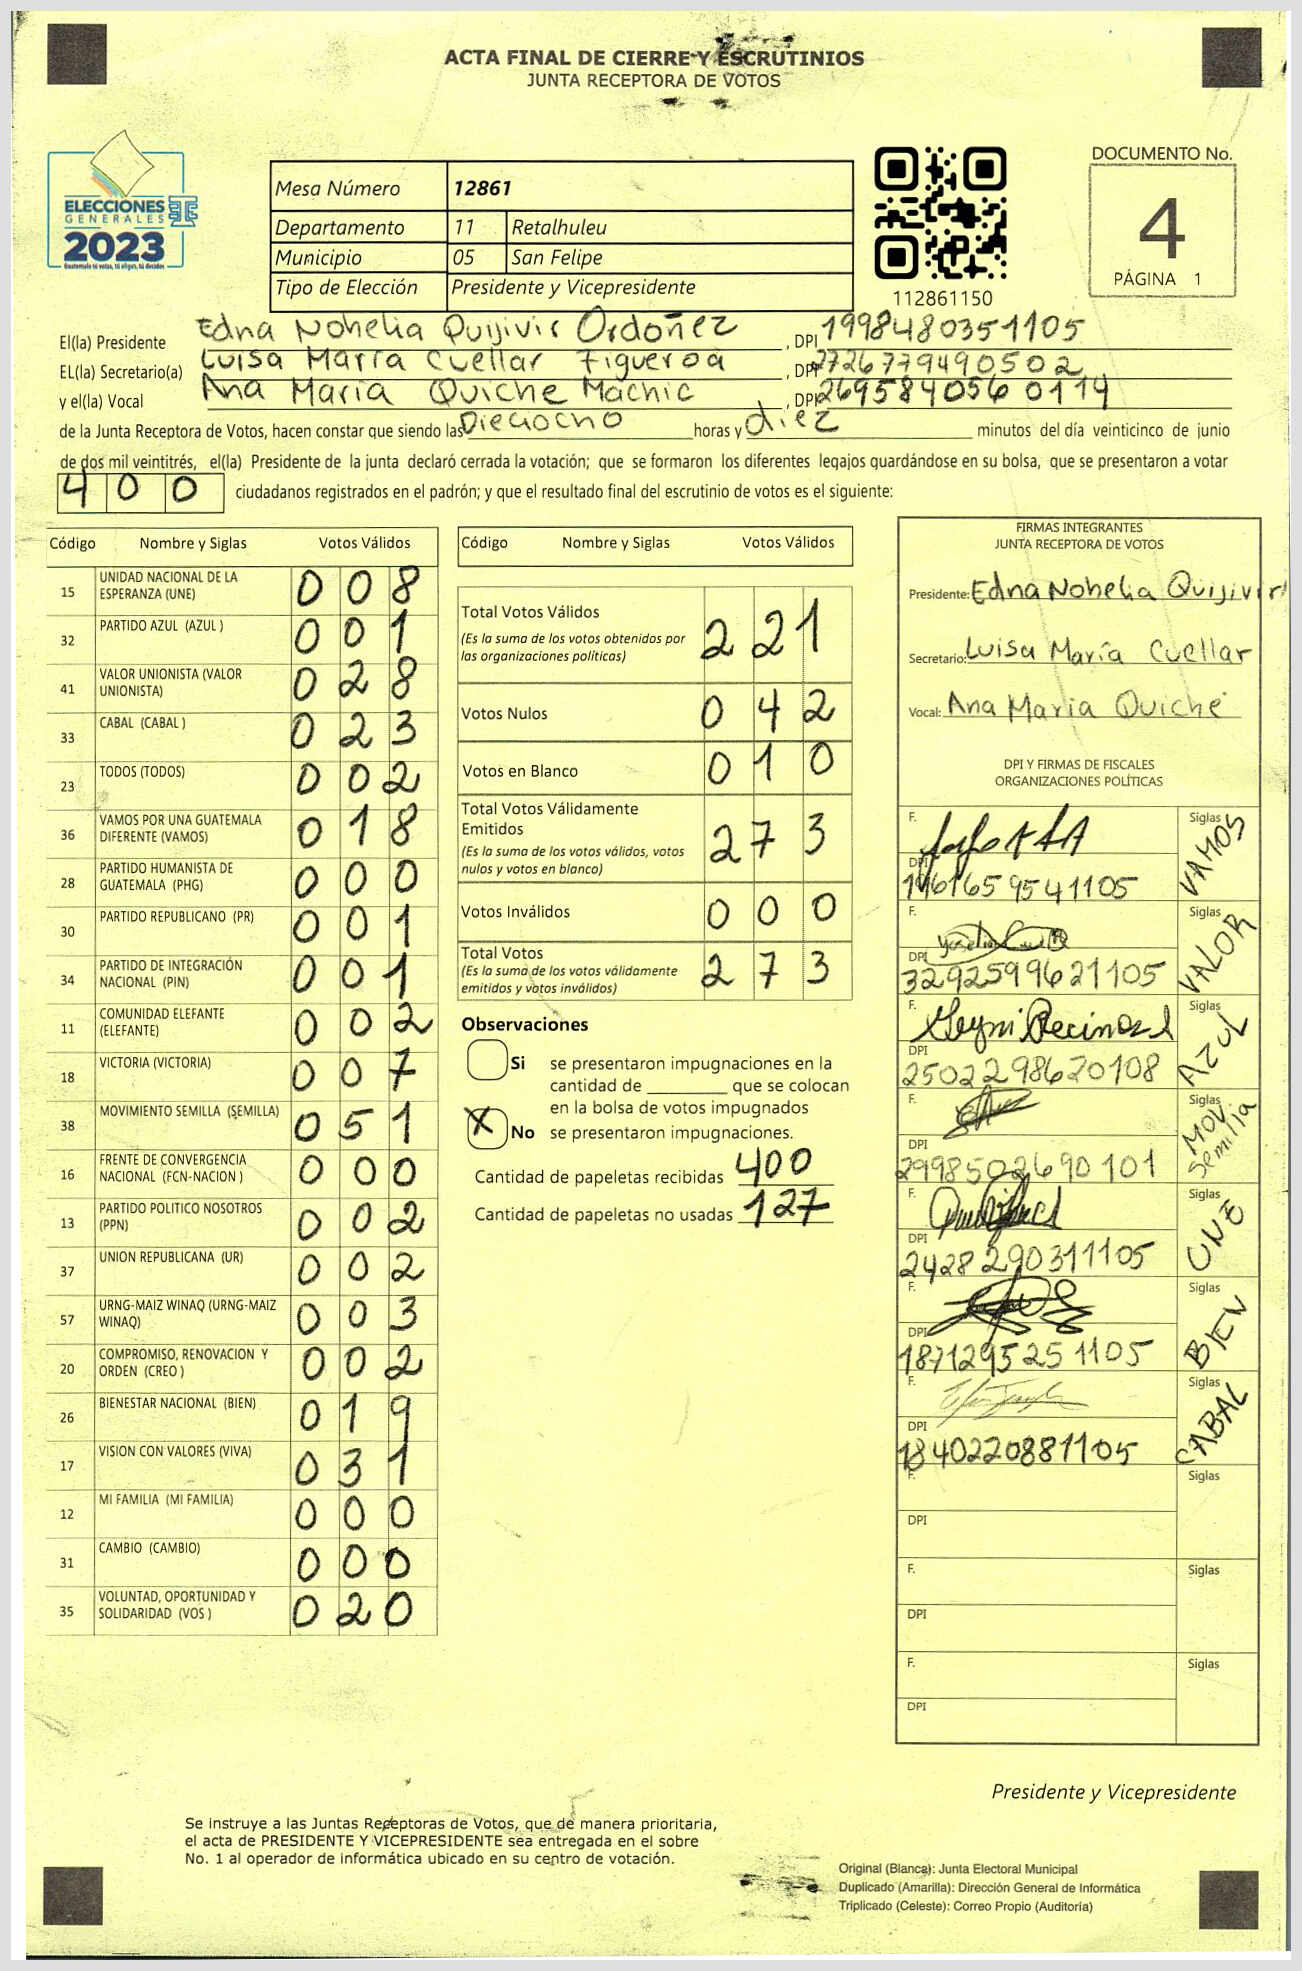 ACTA FINAL DE CIERRE Y ESCRUTINIOS
JUNTA RECEPTORA DE VOTOS
ELECCIONES
GENERALES
2023
Guatemala tú votas, tú eliges, tú decides
Mesa Número 12861
Departamento 11 Retalhuleu
Municipio 05 San Felipe
Tipo de Elección Presidente y Vicepresidente
112861150
DOCUMENTO No.
4
PÁGINA 1
El(la) Presidente Edna Nohelia Quijivix Ordoñez , DPI 1998480351105
EL(la) Secretario(a) Luisa María Cuellar Figueroa , DPI 2726779490502
y el(la) Vocal Ana María Quiche Machic , DPI 2695840560114
de la Junta Receptora de Votos, hacen constar que siendo las Dieciocho horas y diez minutos del día veinticinco de junio
de dos mil veintitrés, el(la) Presidente de la junta declaró cerrada la votación; que se formaron los diferentes legajos guardándose en su bolsa, que se presentaron a votar
400 ciudadanos registrados en el padrón; y que el resultado final del escrutinio de votos es el siguiente:
Código Nombre y Siglas Votos Válidos
15 UNIDAD NACIONAL DE LA ESPERANZA (UNE) 008
32 PARTIDO AZUL (AZUL ) 001
41 VALOR UNIONISTA (VALOR UNIONISTA) 028
33 CABAL (CABAL ) 023
23 TODOS (TODOS) 002
36 VAMOS POR UNA GUATEMALA DIFERENTE (VAMOS) 018
28 PARTIDO HUMANISTA DE GUATEMALA (PHG) 000
30 PARTIDO REPUBLICANO (PR) 001
34 PARTIDO DE INTEGRACIÓN NACIONAL (PIN) 001
11 COMUNIDAD ELEFANTE (ELEFANTE) 002
18 VICTORIA (VICTORIA) 007
38 MOVIMIENTO SEMILLA (SEMILLA) 051
16 FRENTE DE CONVERGENCIA NACIONAL (FCN-NACION ) 000
13 PARTIDO POLITICO NOSOTROS (PPN) 002
37 UNION REPUBLICANA (UR) 002
57 URNG-MAIZ WINAQ (URNG-MAIZ WINAQ) 003
20 COMPROMISO, RENOVACION Y ORDEN (CREO ) 002
26 BIENESTAR NACIONAL (BIEN) 019
17 VISION CON VALORES (VIVA) 031
12 MI FAMILIA (MI FAMILIA) 000
31 CAMBIO (CAMBIO) 000
35 VOLUNTAD, OPORTUNIDAD Y SOLIDARIDAD (VOS ) 020
Código Nombre y Siglas Votos Válidos
Total Votos Válidos 221
(Es la suma de los votos obtenidos por
las organizaciones políticas)
Votos Nulos 042
Votos en Blanco 010
Total Votos Válidamente
Emitidos 273
(Es la suma de los votos válidos, votos
nulos y votos en blanco)
Votos Inválidos 000
Total Votos 273
(Es la suma de los votos válidamente
emitidos y votos inválidos)
Observaciones
Si se presentaron impugnaciones en la
cantidad de ________ que se colocan
en la bolsa de votos impugnados
X No se presentaron impugnaciones.
Cantidad de papeletas recibidas 400
Cantidad de papeletas no usadas 127
FIRMAS INTEGRANTES
JUNTA RECEPTORA DE VOTOS
Presidente: Edna Nohelia Quijivix
Secretario: Luisa María Cuellar
Vocal: Ana María Quiché
DPI Y FIRMAS DE FISCALES
ORGANIZACIONES POLÍTICAS
F. Siglas VAMOS
DPI
F. Siglas VALOR
DPI 3292599621105
F. Siglas AZUL
DPI 2502298620108
F. Siglas MOV Semilla
DPI 2998502690101
F. Siglas UNE
DPI 2428290311105
F. Siglas BIEN
DPI 1871295251105
F. Siglas CABAL
DPI 1840220881105
F. Siglas
DPI
F. Siglas
DPI
F. Siglas
DPI
Presidente y Vicepresidente
Se instruye a las Juntas Receptoras de Votos, que de manera prioritaria,
el acta de PRESIDENTE Y VICEPRESIDENTE sea entregada en el sobre
No. 1 al operador de informática ubicado en su centro de votación.
Original (Blanca): Junta Electoral Municipal
Duplicado (Amarilla): Dirección General de Informática
Triplicado (Celeste): Correo Propio (Auditoría)